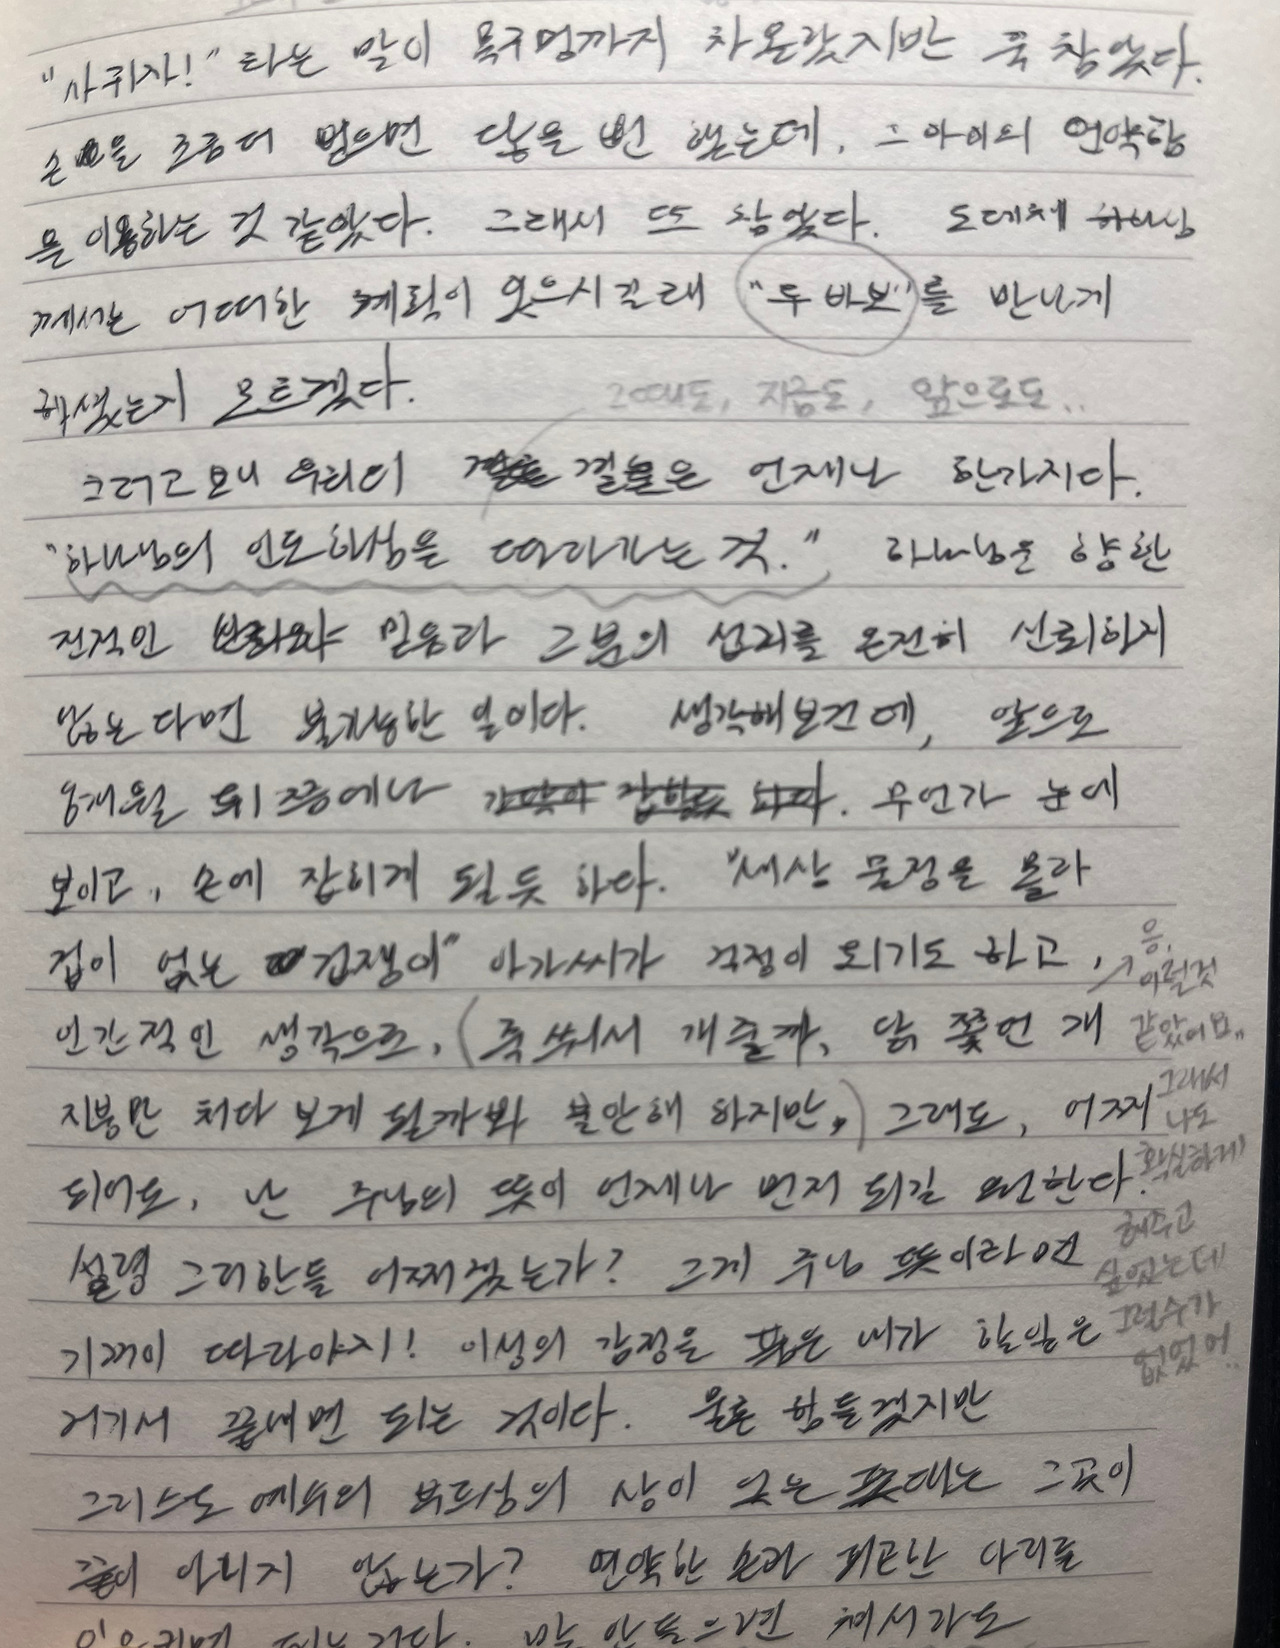 "사귀자!" 라는 말이 목구멍까지 차올랐지만 꾹 참았다.
손을 조금 더 뻗으면 닿을 뻔 했는데, 그 아이의 연약함
을 이용하는 것 같았다. 그래서 또 참았다. 도대체 하나님
께서는 어떠한 계획이 있으시길래 "두 바보"를 만나게
하셨는지 모르겠다.
그때도, 지금도, 앞으로도..
그러고보니 우리의 길은 언제나 한가지다.
"하나님의 인도하심을 따라가는 것." 하나님을 향한
전적인 믿음과 그분의 섭리를 온전히 신뢰하지
않는다면 불가능한 일이다. 생각해보건데, 앞으로
8개월 뒤 쯤에나 무언가 눈에
보이고, 손에 잡히게 될 듯 하다. "세상 물정을 몰라
겁이 없는 겁쟁이" 아가씨가 걱정이 되기도 하고,
인간적인 생각으로, (죽 쒀서 개 줄까, 닭 쫓던 개
지붕만 쳐다 보게 될까봐 불안해 하지만,) 그래도, 어찌
되어도, 난 주님의 뜻이 언제나 먼저 되길 원한다.
설령 그리한들 어찌겠는가? 그게 주님 뜻이라면
기꺼이 따라야지! 이성의 감정을 품은 내가 할 일은
거기서 끝내면 되는 것이다. 물론 힘들겠지만
그리스도 예수의 부르심의 상이 있는 푯대는 그곳이
끝이 아니지 않는가? 연약한 손과 피곤한 다리를
응,
이런것
같았어요..
그래서
나도
확실하게
해주고
싶었는데
그럴수가
없었어..